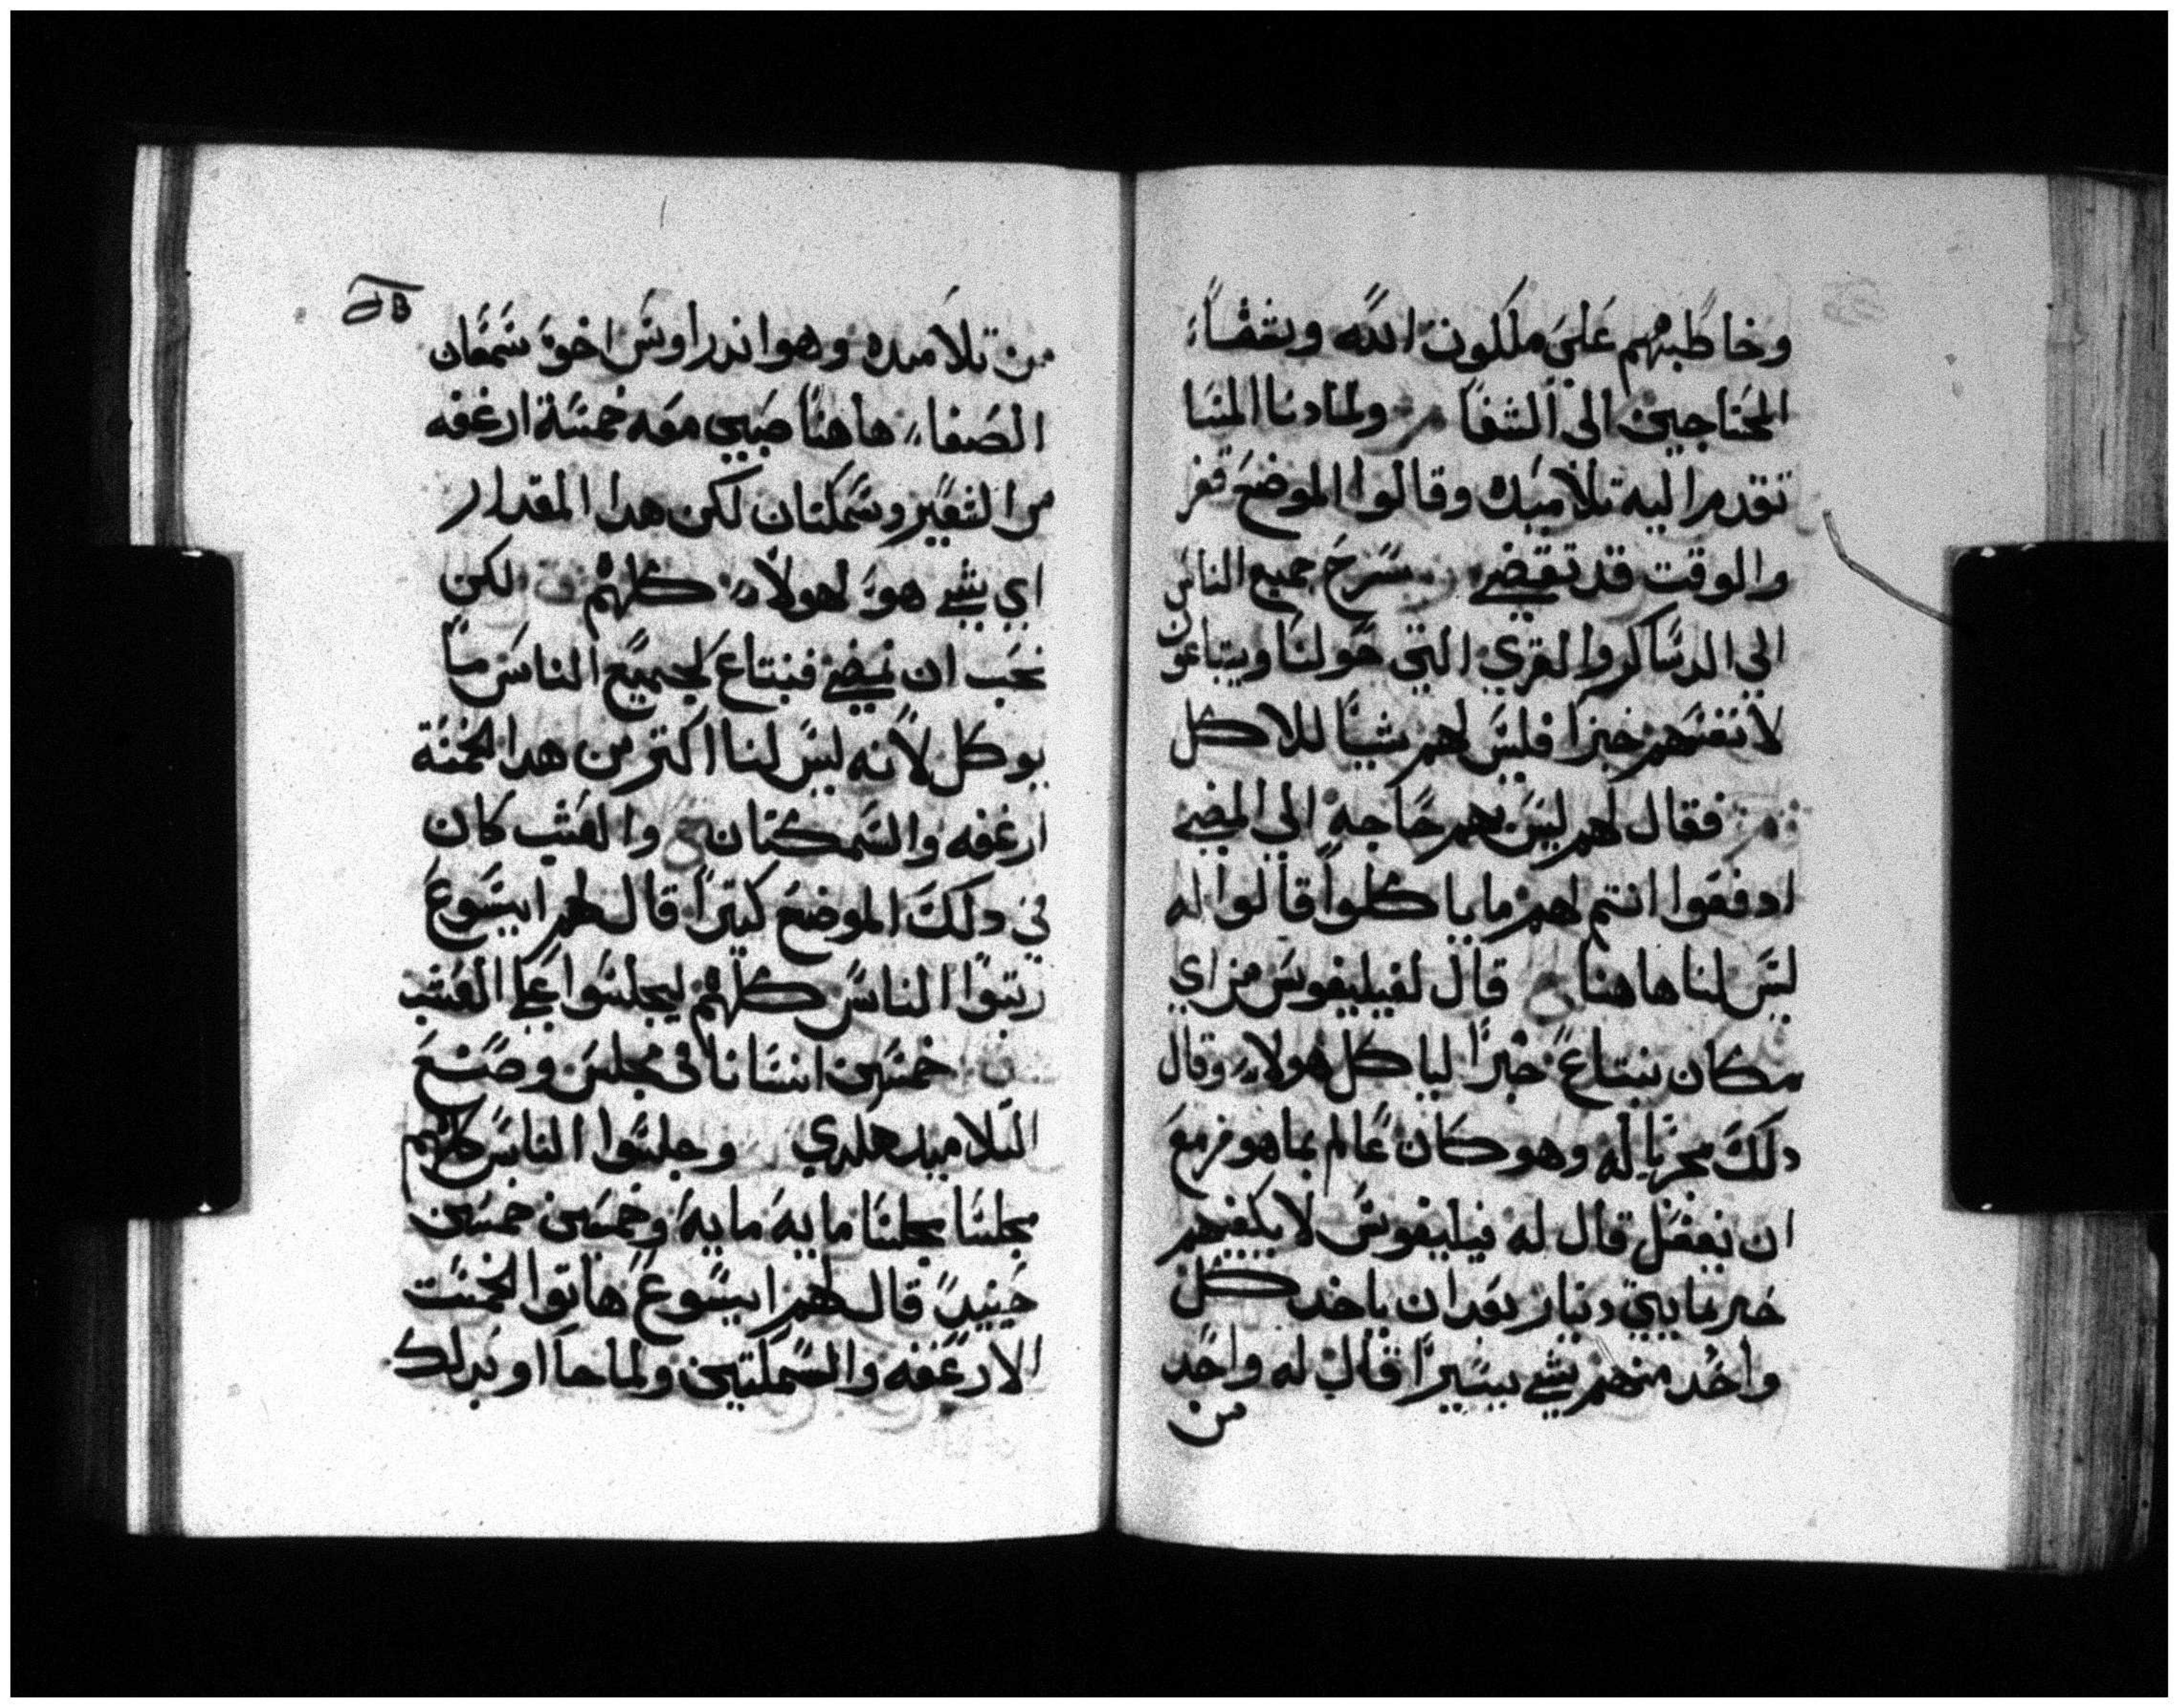 وخاطبهم علي ملكوت الله وبشفاء
المحتاجين الى الشفا مر ولمادنا المسا
تقدم اليه تلاميده وقالوا الموضع قفر
والوقت قد تقضي سرح جميع الناس
الي الدساكر والقري التي حولنا ويبتاعون
لانفسهم خبزا فليس لهم شيا للاكل
فقال لهم ليس بهم حاجه الى المضي
ادفعوا انتم لهم ما ياكلوا قالوا له
ليس لنا هاهنا قال لفيليفوس من اي
مكان نبتاع خبزا لياكل هولاء وقال
دلك مجربا له وهو كان عالم بما هو مزمع
ان يفعل قال له فيليفوس لا يكفيهم
خبز مايتي دينار بعد ان ياخد كل
واحد منهم شي يسيرا قال له واحد
من
من تلاميده وهو اندراوس اخو شمعان
الصفا هاهنا صبي معه خمسة ارغفه
من الشعير وسمكتان لكن هدا المقدار
اي شي هو لهولاء كلهم لكن
نحب ان نمضي فنبتاع لجميع الناس ما
يوكل لانه ليس لنا اكتر من هدا الخمسة
ارغفه والسمكتان والعشب كان
في دلك الموضع كتيرا قال لهم ايسوع
رتبوا الناس كلهم ليجلسوا علي العشب
خمسين انسانا في مجلس وصنع
التلاميد هكدي وجلسوا الناس كلهم
مجلسا مجلسا مايه مايه وخمسين خمسين
حينيد قال لهم ايسوع هاتوا الخمست
الارغفه والسمكتين ولما جااو بدلك